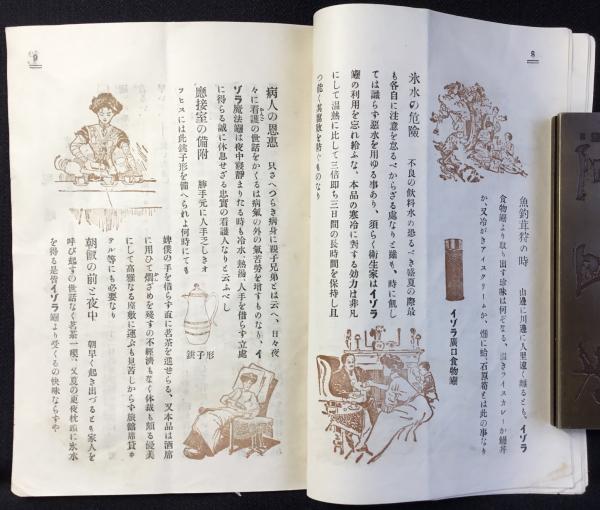 8
魚釣茸狩の時　山邊に川邊に人里遠く離るとも、イゾラ
食物罎より取り出す珍味は何ぞなる、温きライスカレーか鰻丼
か、又冷がきアイスクリームか、燔に蛤、石原葡とは此の事なり
イゾラ廣口食物罎
氷水の危險　不良の飲料水の恐るべき盛夏の際最
も各自に注意を怠るべからざる處なりと雖も、時に飢し
ては識らず惡水を用ゆる事あり、須らく衛生家はイゾラ
罎の利用を忘れ給ふな、本品の寒冷に對する効力は非凡
にして温熱に比して三倍即ち三日間の長時間を保持し且
つ能く其腐敗を防ぐものなり
9
病人の恩惠　只さへつらき病身に親子兄弟とは云へ、日々夜
々に看護の世話をかくるは病氣の外の氣苦勞を増すものなり、イ
ゾラ魔法罎は夜中寝靜まりたる時も冷水、熱湯、人手を借らず立處
に得らる誠に休息せざる忠實の看護人なりと云ふべし
應接室の備附　勝手元に人手乏しきオ
フヒスには此銚子形を備へられよ何時にても
婢僕の手を借らず直に茗茶を進せらる、又本品は酒席
に用ひて燗ざめを殘すの不經濟もなく体裁も頗る優美
にして高雅なる座敷に運ぶも見苦しからず旅館席貸ホ
テル等にも必要なり
銚子形
朝餐の前と夜中　朝早く起き出づるとも家人を
呼び起すの世話なく茗茶一椀、又夏の更夜枕頭に氷水
を得る是皆イゾラ罎より受くるの快味ならずや